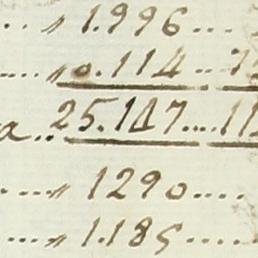 .. " 1.996....
.... " 0.114... 7
a.. 25.147.... 11
.... " 1290....
.... " 1.185.....